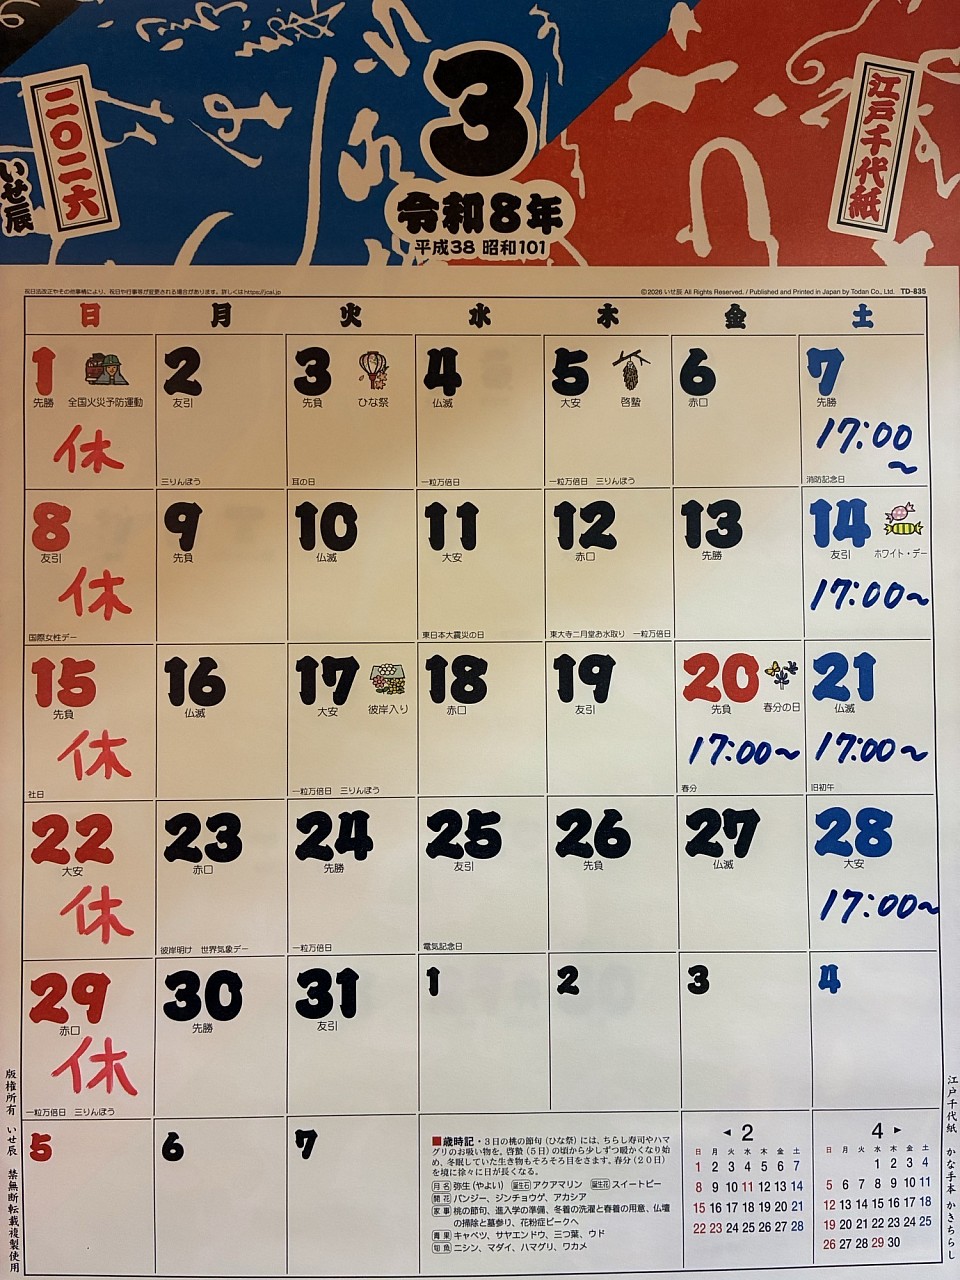 二〇二六
いせ辰
3
令和8年
平成38 昭和101
江戸千代紙
祝日法改正やその他事情により、祝日や行事等が変更される場合があります。詳しくはhttps://jcal.jp
©2026 いせ辰 All Rights Reserved. / Published and Printed in Japan by Todan Co., Ltd. TD-835
日 月 火 水 木 金 土
1 2 3 4 5 6 7
先勝 全国火災予防運動 友引 先負 ひな祭 仏滅 大安 啓蟄 赤口 先勝
休 17:00〜
三りんぼう 耳の日 一粒万倍日 一粒万倍日 三りんぼう 消防記念日
8 9 10 11 12 13 14
友引 先負 仏滅 大安 赤口 先勝 友引 ホワイト・デー
休 17:00〜
国際女性デー 東日本大震災の日 東大寺二月堂お水取り 一粒万倍日
15 16 17 18 19 20 21
先負 仏滅 大安 彼岸入り 赤口 友引 先負 春分の日 仏滅
休 17:00〜 17:00〜
社日 一粒万倍日 三りんぼう 春分 旧初午
22 23 24 25 26 27 28
大安 赤口 先勝 友引 先負 仏滅 大安
休 17:00〜
彼岸明け 世界気象デー 一粒万倍日 電気記念日
29 30 31 1 2 3 4
赤口 先勝 友引
休
一粒万倍日 三りんぼう
5 6 7
■歳時記・3日の桃の節句(ひな祭)には、ちらし寿司やハマ
グリのお吸い物を。啓蟄(5日)の頃から少しずつ暖かくなり始
め、冬眠していた生き物もそろそろ目をさます。春分(20日)
を境に徐々に日が長くなる。
月名 弥生(やよい) 誕生石 アクアマリン 誕生花 スイートピー
開花 パンジー、ジンチョウゲ、アカシア
家事 桃の節句、進入学の準備、冬着の洗濯と春着の用意、仏壇
の掃除と墓参り、花粉症ピークへ
青果 キャベツ、サヤエンドウ、三つ葉、ウド
旬魚 ニシン、マダイ、ハマグリ、ワカメ
◀ 2
日 月 火 水 木 金 土
1 2 3 4 5 6 7
8 9 10 11 12 13 14
15 16 17 18 19 20 21
22 23 24 25 26 27 28
4 ▶
日 月 火 水 木 金 土
1 2 3 4
5 6 7 8 9 10 11
12 13 14 15 16 17 18
19 20 21 22 23 24 25
26 27 28 29 30
版権所有 いせ辰 禁無断転載複製使用
江戸千代紙 かな手本 かきちらし